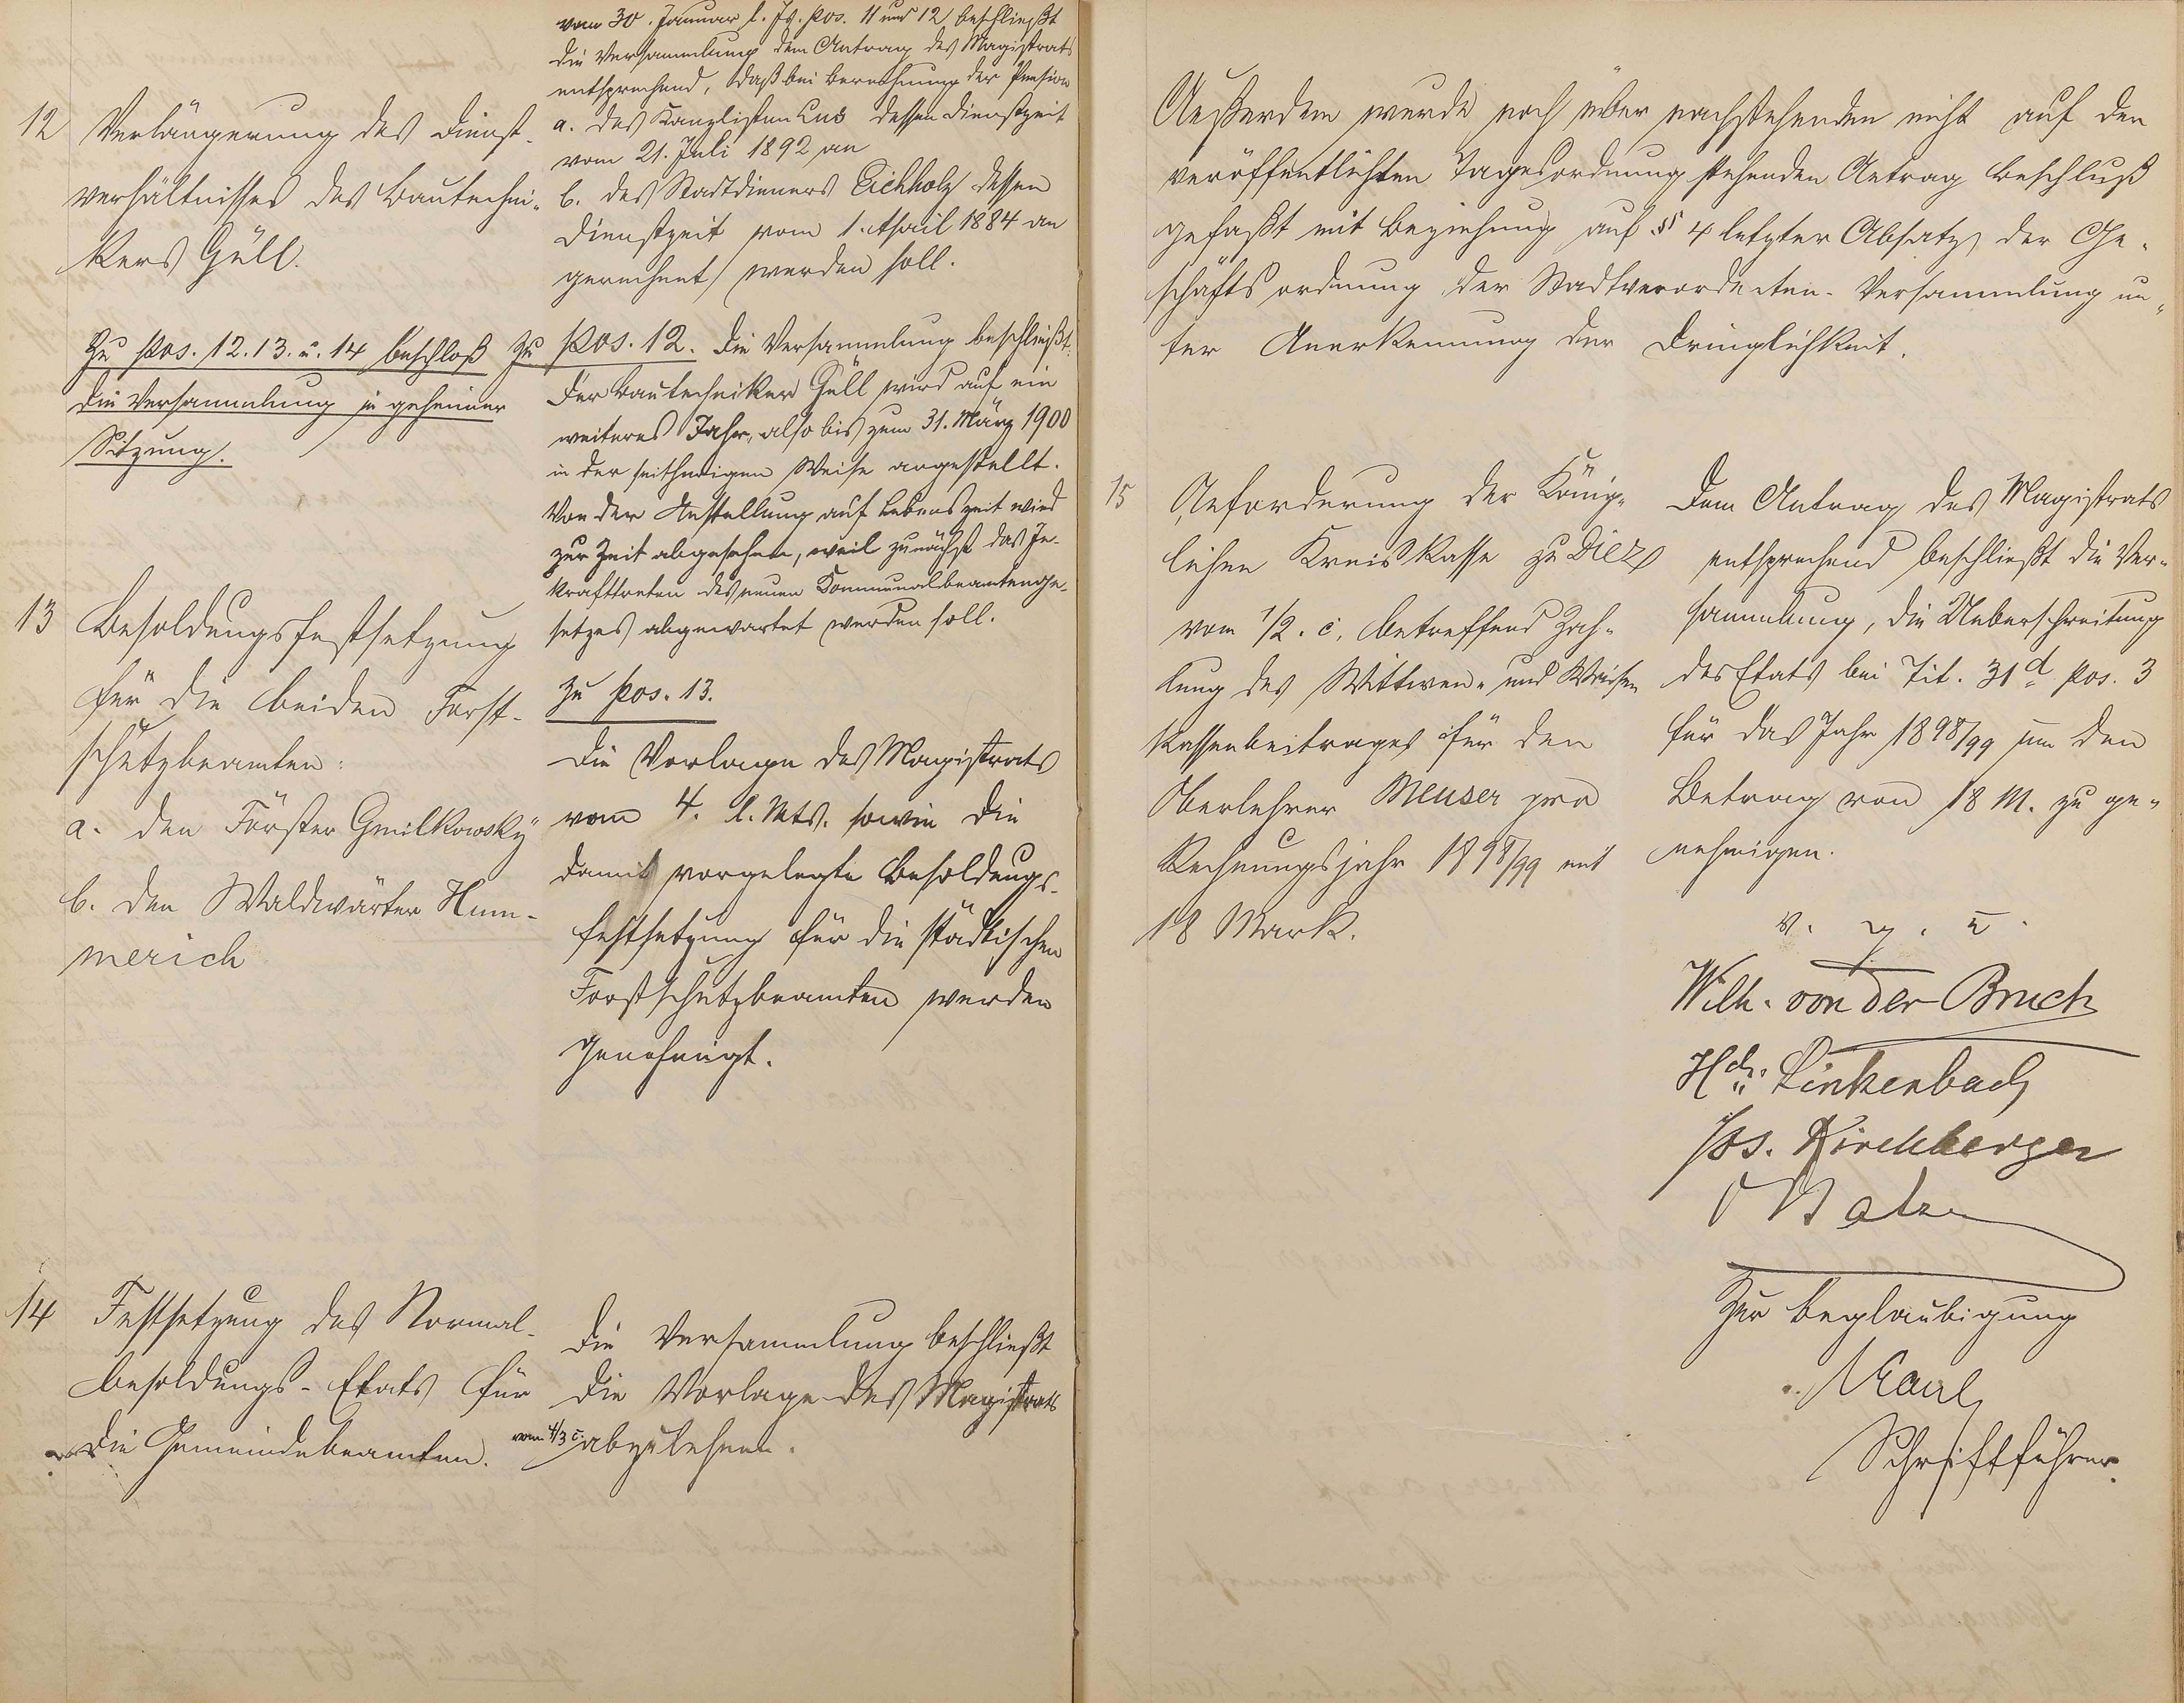 vom 30. Januar l. Js. pos. 11 und 12 beschließt
die Versammlung dem Antrag des Magistrats
entsprechend, daß bei Berechnung der Pension
a. des Kanzlisten dessen Dienstzeit
vom 21. Juli 1892 an
b. des Stadtdieners Eichholz dessen
Dienstzeit vom 1. April 1884 an
gerechnet werden soll.
12 Verlängerung des Dienst-
verhältnisses des Bautechni-
kers Güll.
Zu pos. 12. 13. u. 14 beschloß
die Versammlung in geheimer
Sitzung.
Zu pos. 12. Die Versammlung beschließt:
Der Bautechniker Güll wird auf ein
weiteres Jahr, also bis zum 31. März 1900
in der seitherigen Weise angestellt.
Von der Anstellung auf Lebenszeit wird
zur Zeit abgesehen, weil zunächst das In-
krafttreten des neuen Kommunalbeamtenge-
setzes abgewartet werden soll.
13 Besoldungsfestsetzung
für die beiden Forst-
schutzbeamten:
a. den Förster Gmilkowsky
b. den Waldwärter Hum-
merich
Zu pos. 13.
Die Vorlage des Magistrats
vom 4. l. Mts. sowie die
damit vorgelegte Besoldungs-
festsetzung für die städtischen
Forstschutzbeamten werden
genehmigt.
14 Festsetzung des Normal-
besoldungs-Etats für
die Gemeindebeamten.
Die Versammlung beschließt
die Vorlage des Magistrats
vom 4/3 c. abzulehnen.
Außerdem wurde noch über nachstehenden nicht auf der
veröffentlichten Tagesordnung stehenden Antrag Beschluß
gefaßt mit Beziehung auf § 4 letzter Absatz der Ge-
schäftsordnung der Stadtverordneten-Versammlung un-
ter Anerkennung der Dringlichkeit.
15 Anforderung der König-
lichen Kreiskasse zu Diez
vom 1/2. c. betreffend Zah-
lung des Wittwen- und Waisen
kassenbeitrages für den
Oberlehrer Meuser pro
Rechnungsjahr 1898/99 mit
18 Mark.
Dem Antrag des Magistrats
entsprechend beschließt die Ver-
sammlung, die Ueberschreitung
des Etats bei Tit. 31d pos. 3
für das Jahr 1898/99 um den
Betrag von 18 M. zu ge-
nehmigen.
v. g. u.
Wilh. von der Bruch
Hch. Linkenbach
Jos. Kirchberger
Zur Beglaubigung
Schriftführer.